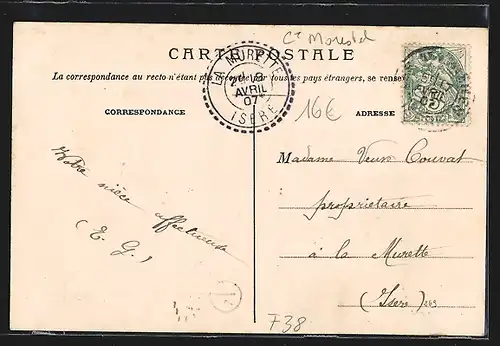 Ct Morestel
CARTE POSTALE
La correspondance au recto n'étant pas acceptée par tous les pays étrangers, se rense
LA MURETTE
AVRIL
07
ISÈRE
16€
CORRESPONDANCE
ADRESSE
Votre nièce affectueuse
(E. G.)
Madame Veuve Couvat
propriétaire
à la Murette
(Isère) 263
F38